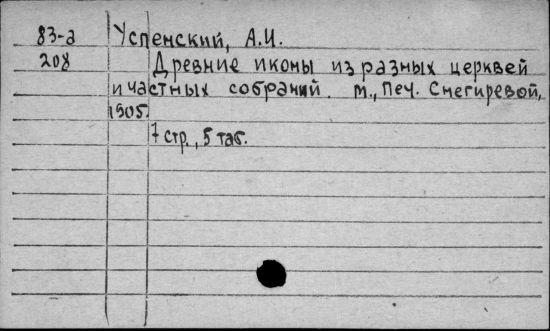 83-а Успенский, А.И.
208 Древние иконы из разных церквей
и частных собраний. М., Печ. Снегиревой,
1905.
7 стр., 5 таб.